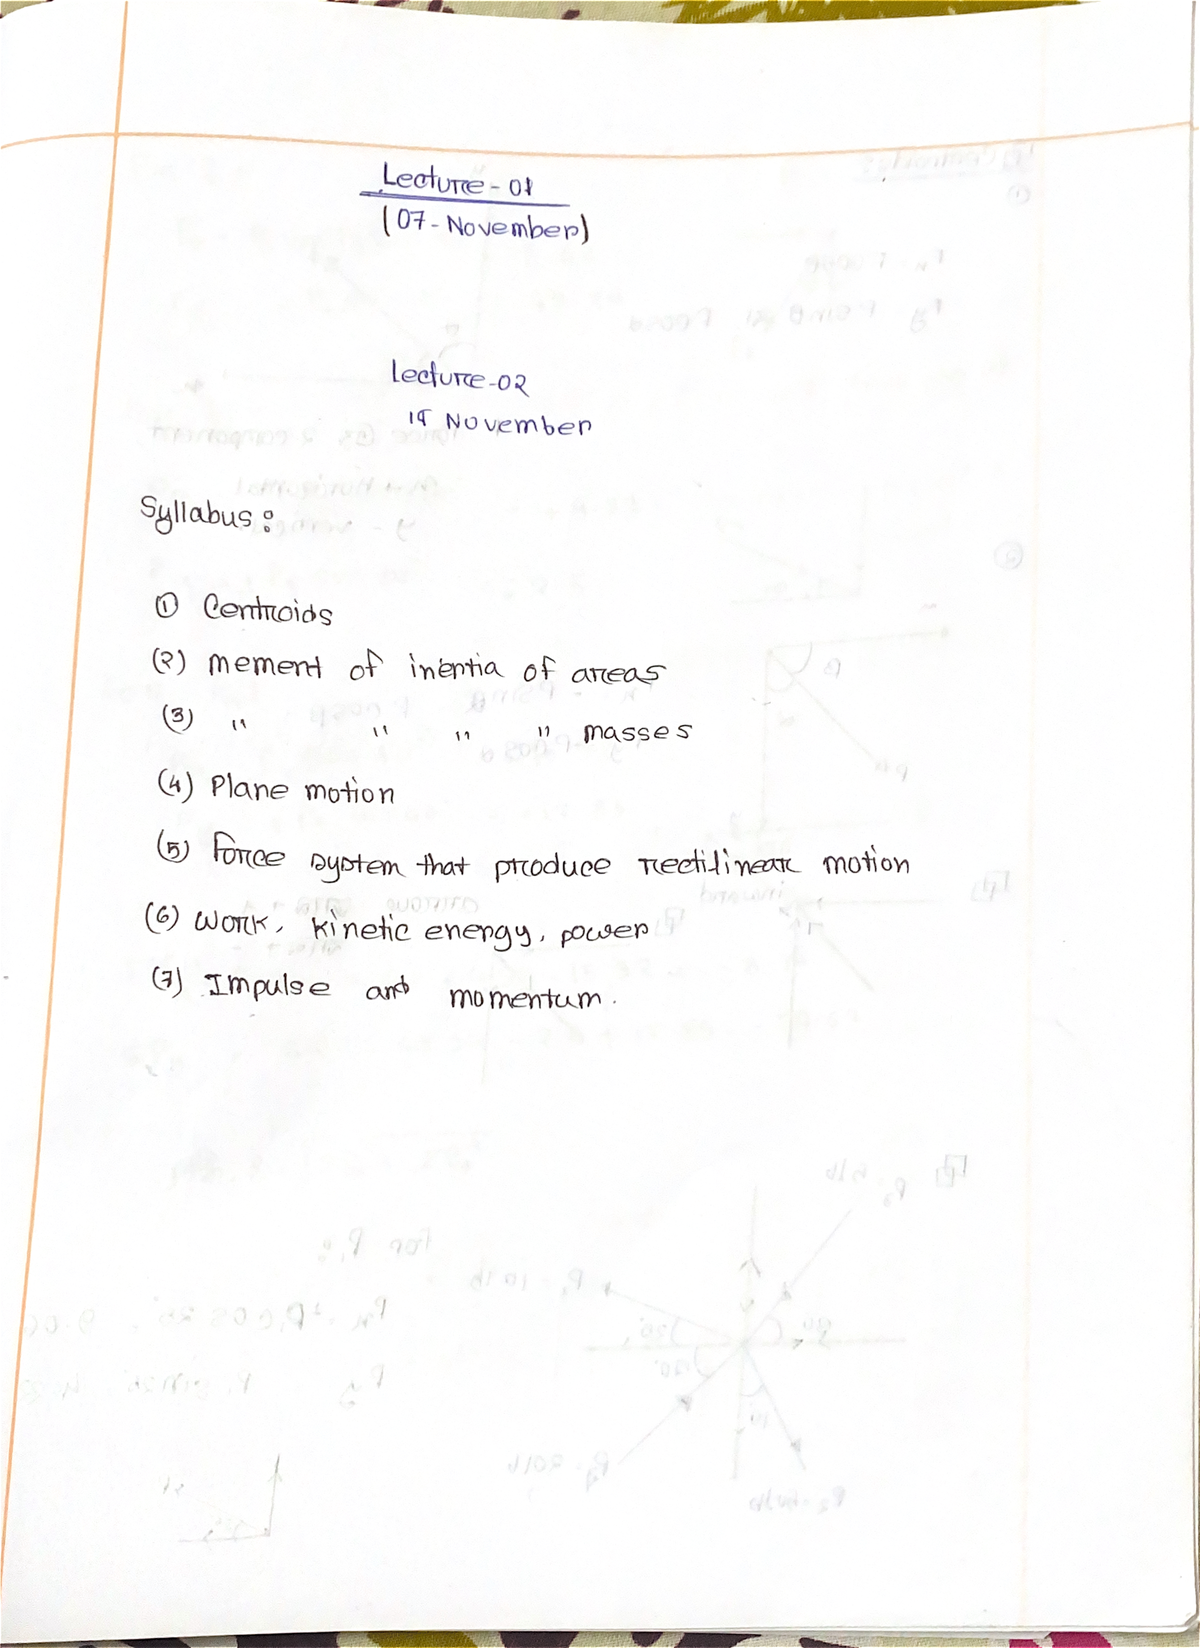 Lecture - 01
(07 - November)
Lecture-02
November
Syllabus:
① Centroids
(2) mement of inentia of areas
(3) " " " " masses
(4) Plane motion
(5) Force system that produce rectilinear motion
(6) Work, kinetic energy, power
(7) Impulse and momentum.